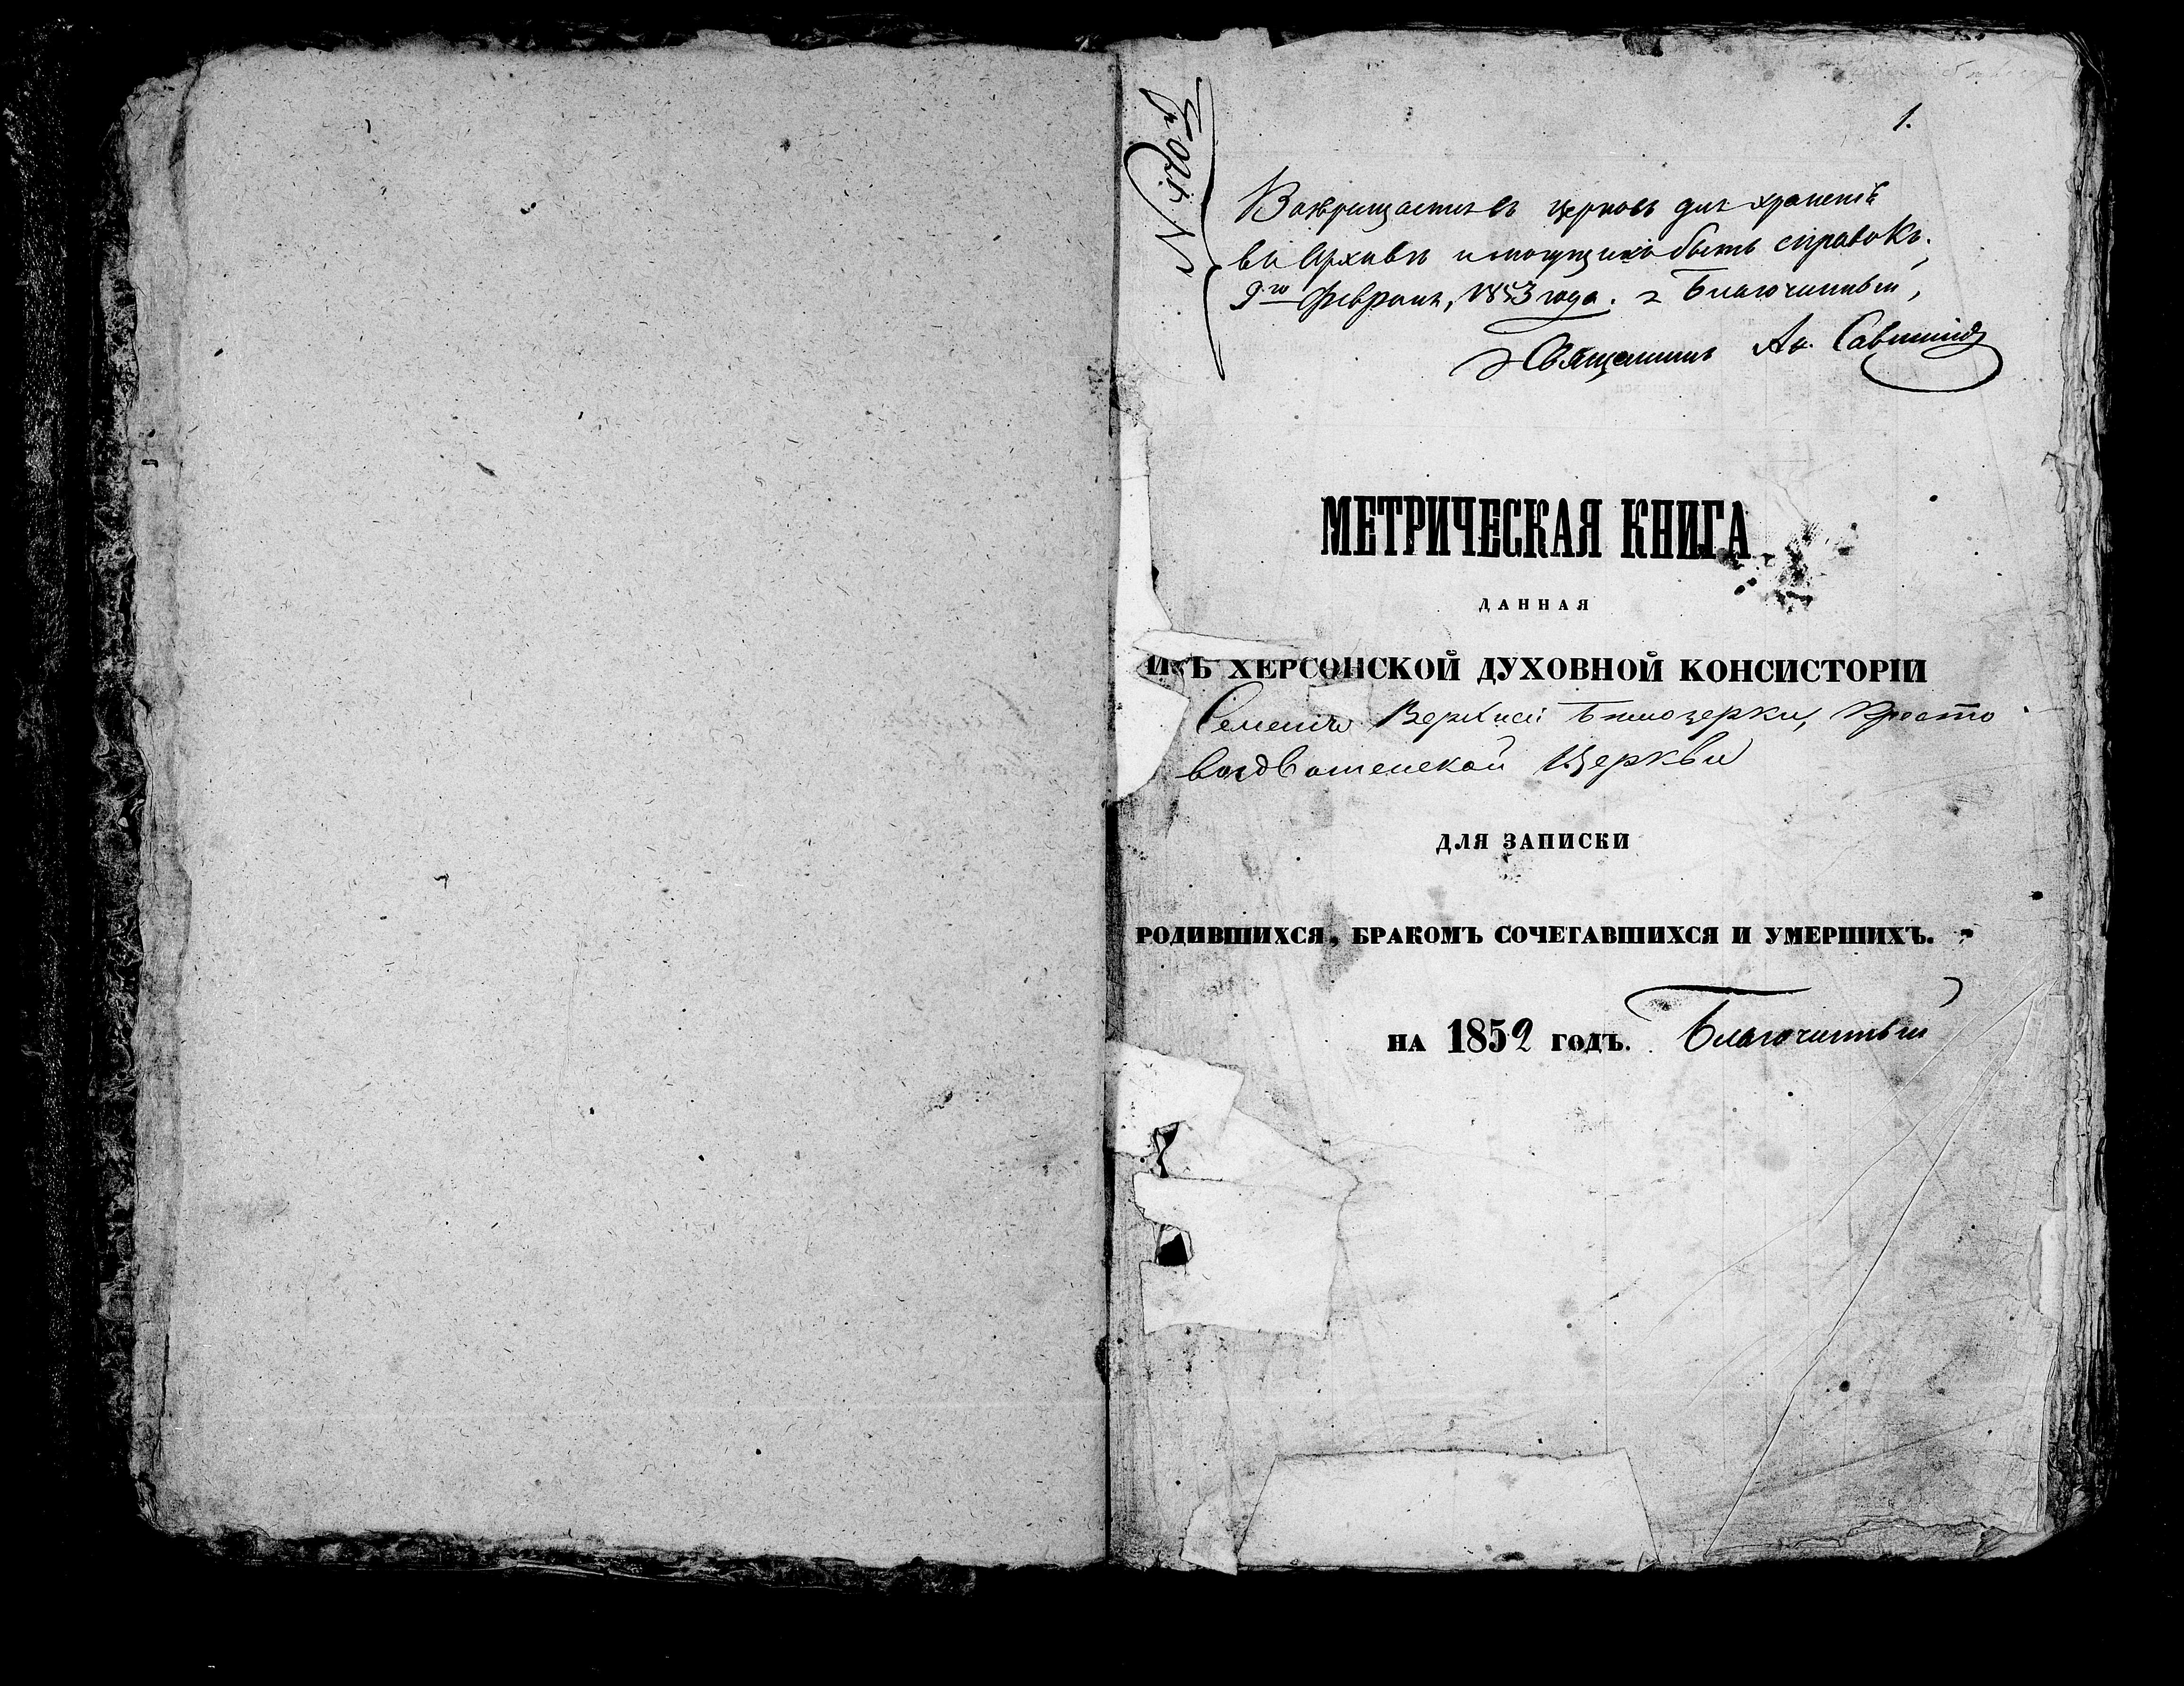 1.
Возвращается въ церковь для храненія
въ Архивѣ и могущихъ быть справокъ.
9го Февраля, 1853 года. Благочинный,
Священникъ Ал.
МЕТРИЧЕСКАЯ КНИГА
ДАННАЯ
ИЗЪ ХЕРСОНСКОЙ ДУХОВНОЙ КОНСИСТОРІИ
Селенія Верхней Бѣлозерки, Кресто
воздвиженской Церкви
ДЛЯ ЗАПИСКИ
РОДИВШИХСЯ, БРАКОМЪ СОЧЕТАВШИХСЯ И УМЕРШИХЪ.
НА 1852 ГОДЪ. Благочинный